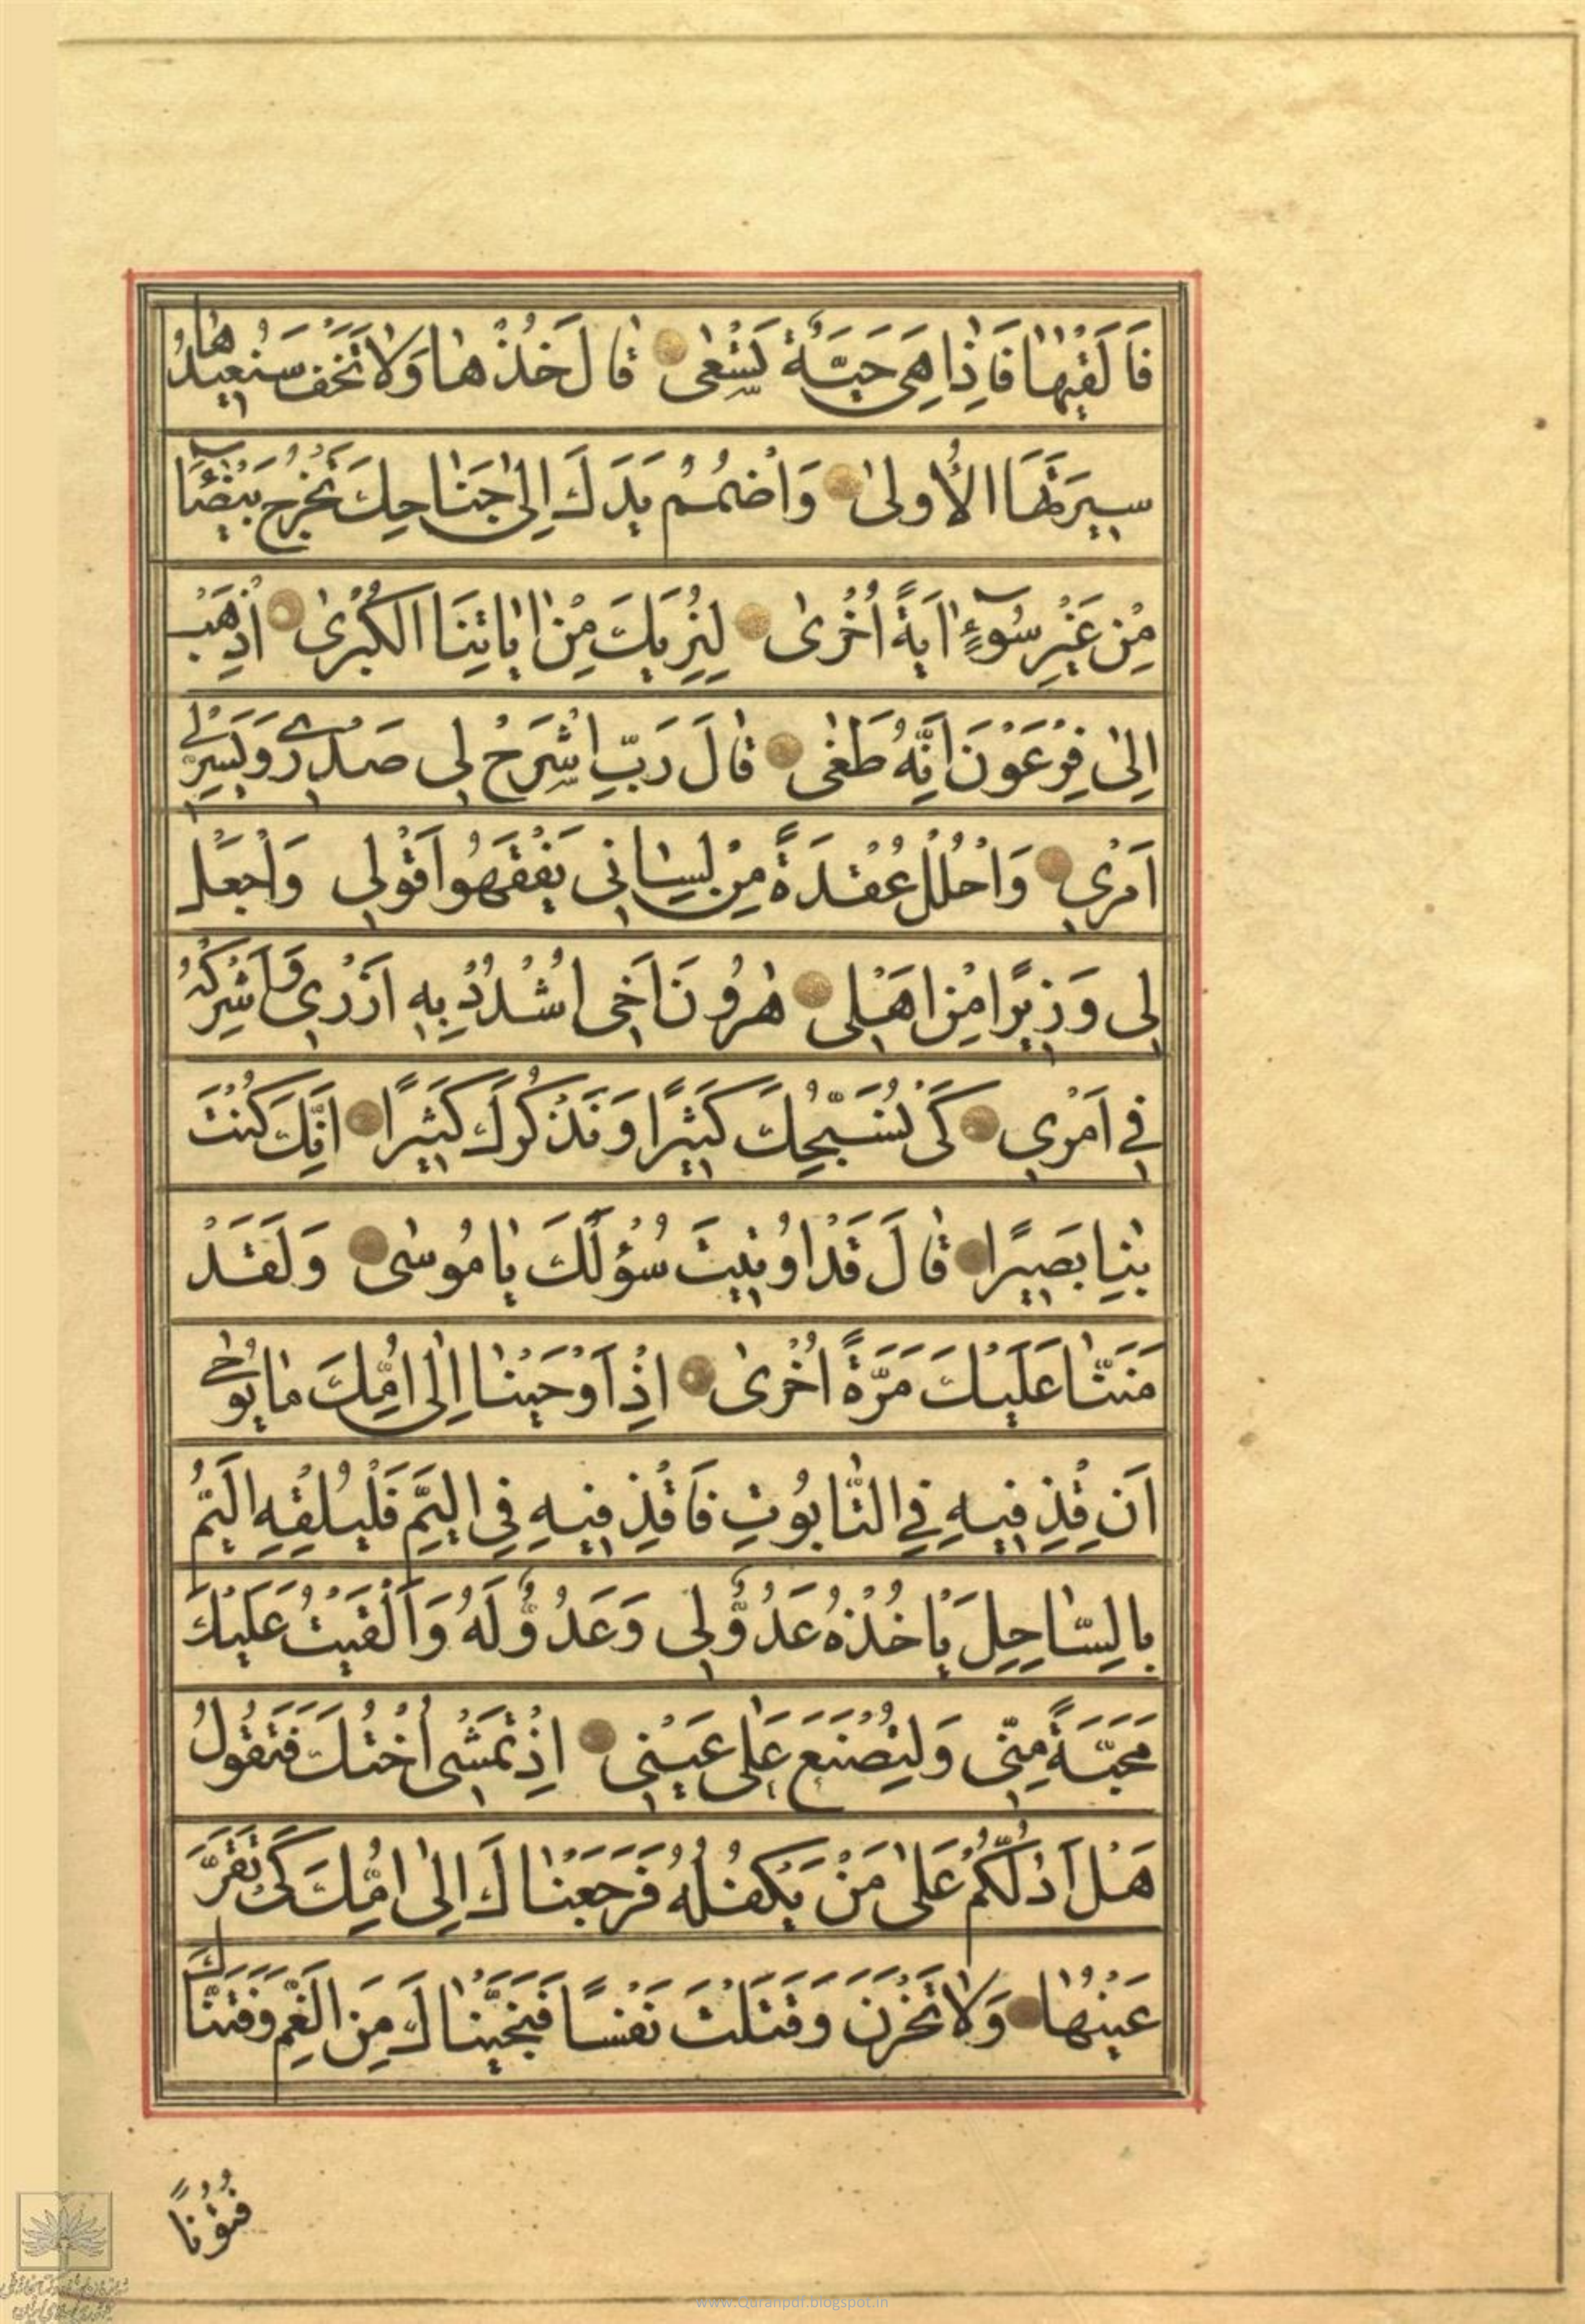 فَاَلَقْیٰهٰا فَاِذٰا هِیَ حَیَّةٌ تَسْعٰی قٰالَ خُذْهٰا وَلٰا تَخَفْ سَنُعیٖدُهٰا
سیٖرَتَهَا الْاُولیٰ وَاضْمُمْ یَدَكَ اِلیٰ جَنٰاحِكَ تَخْرُجْ بَیْضٰٓاءَ
مِنْ غَیْرِ سُوٓءٍ اٰیَةً اُخْرىٰ لِنُرِیَكَ مِنْ اٰیٰاتِنَا الْكُبْرىٰ اِذْهَبْ
اِلیٰ فِرْعَوْنَ اِنَّهُ طَغٰی قٰالَ رَبِّ اشْرَحْ لیٖ صَدْرٖی وَیَسِّرْلیٖ
اَمْریٖ وَاحْلُلْ عُقْدَةً مِنْ لِسٰانیٖ یَفْقَهُوا قَوْلیٖ وَاجْعَلْ
لیٖ وَزیٖرًا مِنْ اَهْلیٖ هٰرُونَ اَخیٖ اشْدُدْ بِهِ اَزْریٖ وَاَشْرِكْهُ
فیٖ اَمْریٖ كَیْ نُسَبِّحَكَ كَثیٖرًا وَنَذْكُرَكَ كَثیٖرًا اِنَّكَ كُنْتَ
بِنٰا بَصیٖرًا قٰالَ قَدْ اُوتیٖتَ سُؤْلَكَ یٰا مُوسٰی وَلَقَدْ
مَنَنّٰا عَلَیْكَ مَرَّةً اُخْرىٰ اِذْ اَوْحَیْنٰا اِلیٰ اُمِّكَ مٰا یُوحٰی
اَنِ اقْذِفیٖهِ فِی التّٰابُوتِ فَاقْذِفیٖهِ فِی الْیَمِّ فَلْیُلْقِهِ الْیَمُّ
بِالسّٰاحِلِ یَاْخُذْهُ عَدُوٌّ لیٖ وَعَدُوٌّ لَهُ وَاَلْقَیْتُ عَلَیْكَ
مَحَبَّةً مِنّیٖ وَلِتُصْنَعَ عَلیٰ عَیْنیٖ اِذْ تَمْشیٖ اُخْتُكَ فَتَقُولُ
هَلْ اَدُلُّكُمْ عَلیٰ مَنْ یَكْفُلُهُ فَرَجَعْنٰاكَ اِلیٰ اُمِّكَ كَیْ تَقَرَّ
عَیْنُهٰا وَلٰا تَحْزَنَ وَقَتَلْتَ نَفْسًا فَنَجَّیْنٰاكَ مِنَ الْغَمِّ وَفَتَنّٰاكَ
فُتُوْنًا
www.Quranpdf.blogspot.in